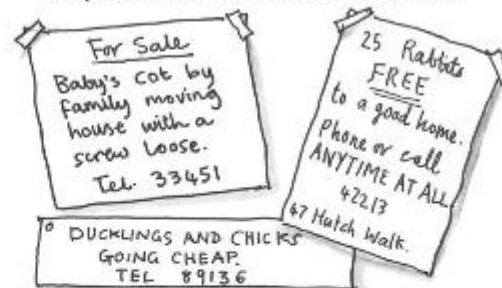 For Sale
Baby's cot by
family moving
house with a
screw loose.
Tel. 33451
25 Rabbits
FREE
to a good home.
Phone or call
ANYTIME AT ALL
42213
47 Hutch Walk.
DUCKLINGS AND CHICKS
GOING CHEAP.
TEL 89136